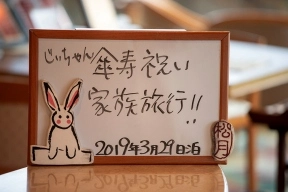 じいちゃん傘寿祝い
家族旅行!!
2019年3月29日泊
松月